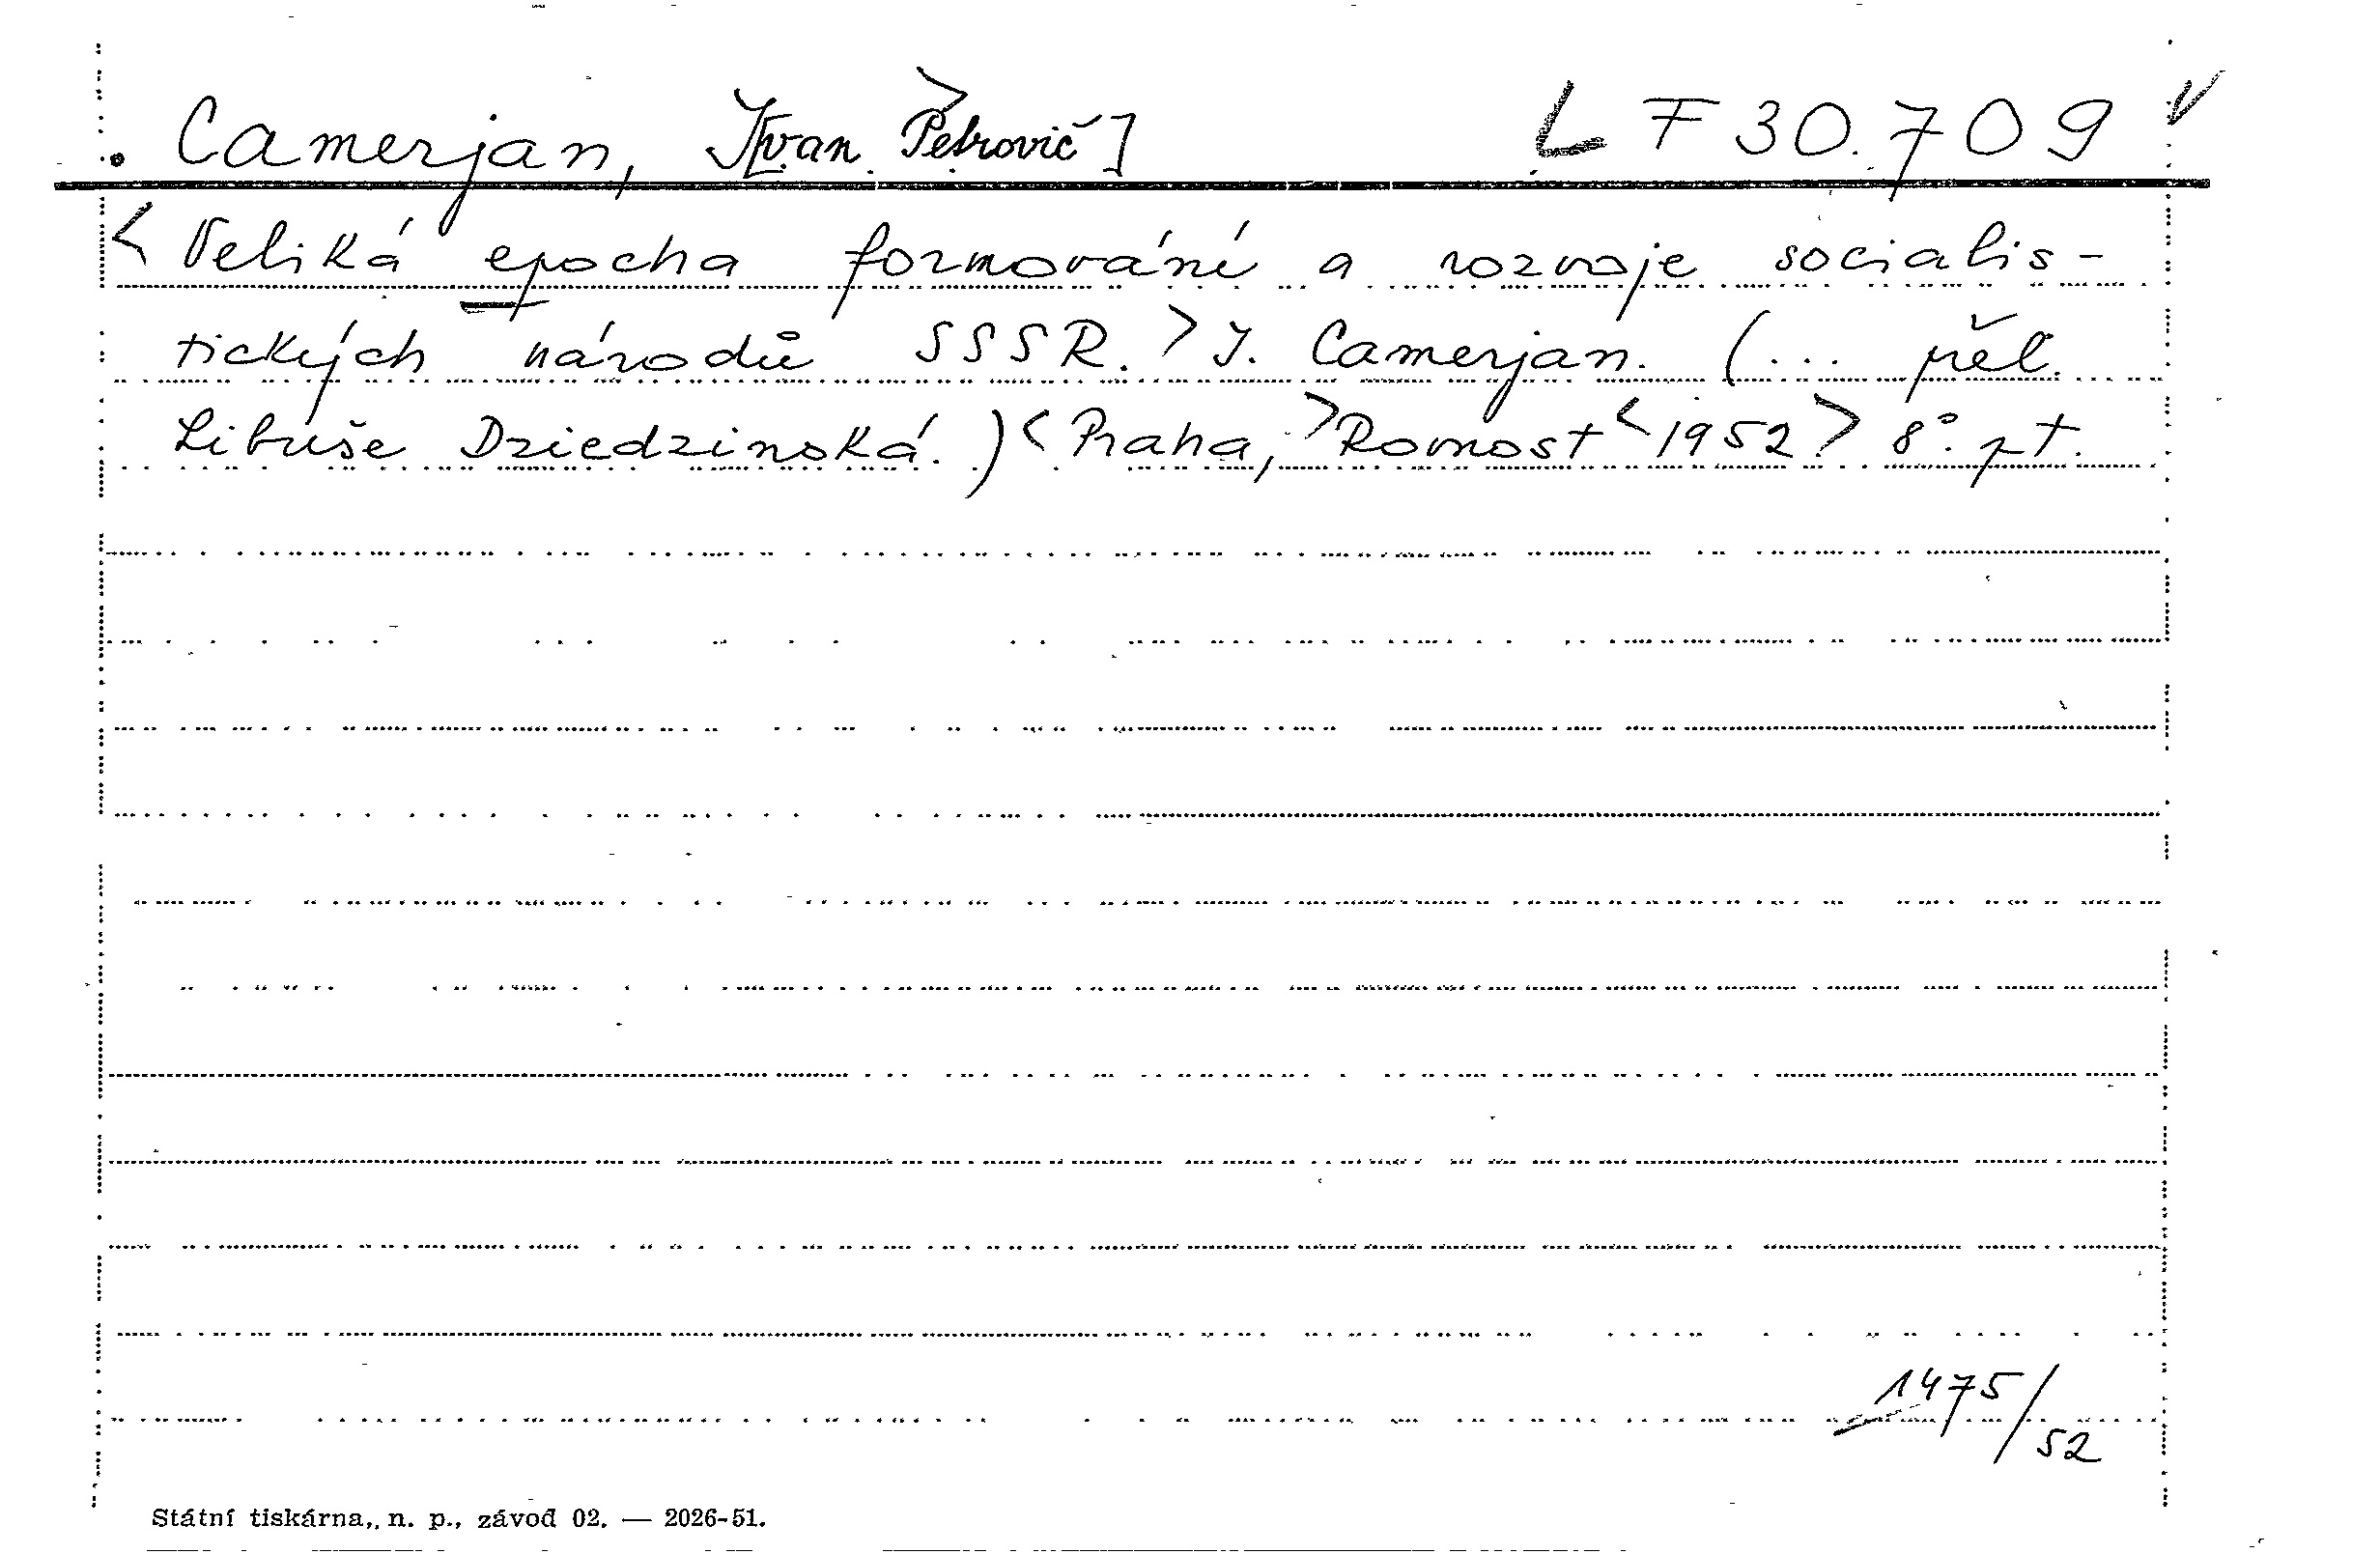 Camerjan, I[van Petrovič] L F 30.709
<Veliká epocha formování a rozvoje socialis-
tických národů SSSR.> I. Camerjan. (... přel.
Libuše Dziedzinská.) <Praha,> Rovnost <1952> 8°. pt.
1475/52
Státní tiskárna, n. p., závod 02. — 2026-51.